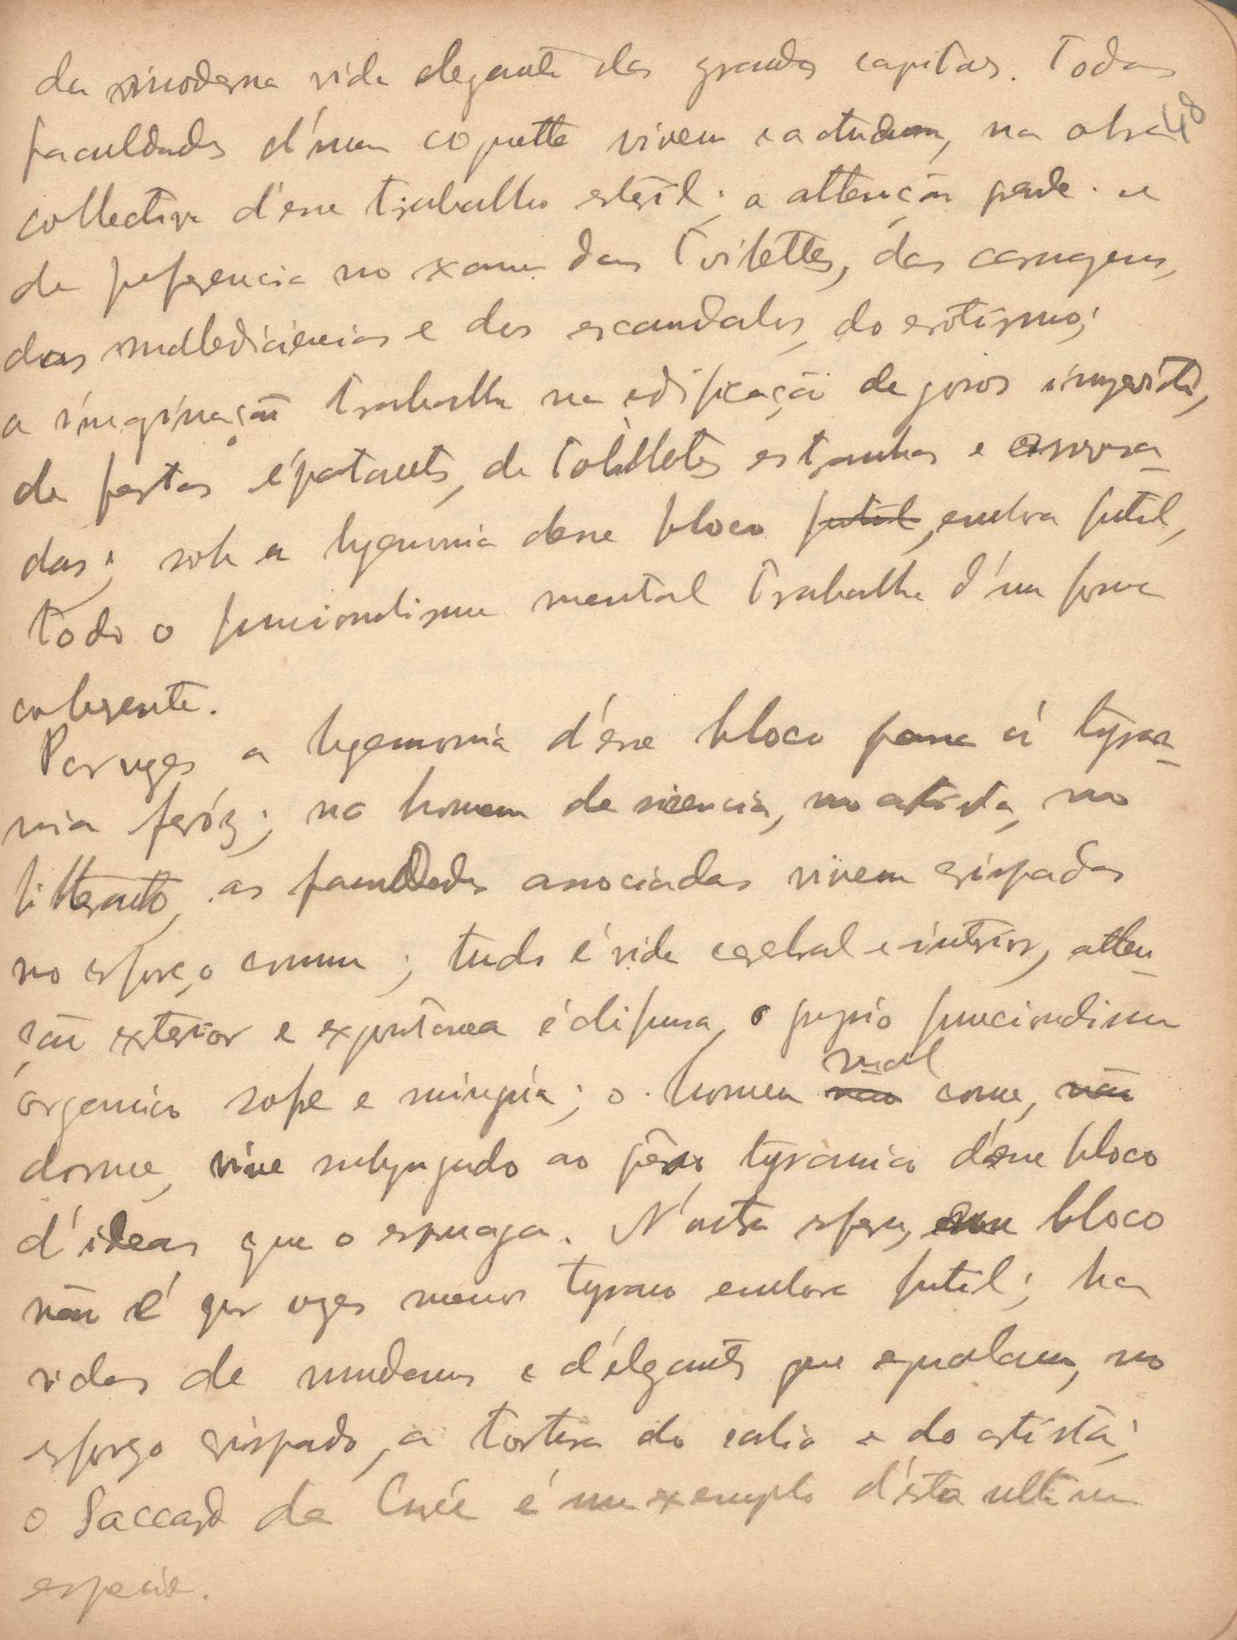 da moderna vida elegante das grandes capitaes. Todas
48
faculdades d'uma coquette vivem e actuam, na obra
collectiva d'esse trabalho esteril; a attenção perde-se
de preferencia no exame das toilettes, das carruagens,
das maledicencias e dos escandalos, do erotismo;
a imaginação trabalha na edificação de gosos
de festas épatants, de toilletes estranhas e
das; sob a hegemonia d'esse bloco futil, embora futil,
todo o funcionalismo mental trabalha d'uma forma
coherente.
Por vezes a hegemonia d'esse bloco passa á tyran-
nia feróz; no homem de sciencia, no artista, no
litterato, as faculdades associadas vivem crispadas
no esforço comum; tudo é vida cerebral e interior, atten-
ção exterior e expontanea é difusa, o propio funcionalismo
organico sofre e mingúa; o homem não mal come, não
dorme, vive subjugado ao pêso tyranico d'esse bloco
d'ideas que o esmaga. N'outra esfera, esse bloco
não é por vezes menos tyrano embora futil; ha
vidas de mundanas e d'élegantes que egualam, no
esforço crispado, a tortura do sabio e do artista;
o Saccard da Curée é um exemplo d'esta ultima
especie.